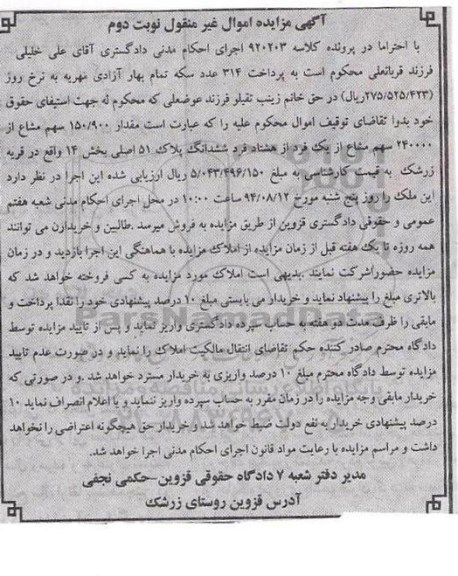 آگهی مزایده اموال غیر منقول نوبت دوم
با احتراما در پرونده کلاسه ۹۲۰۲۰۳ اجرای احکام مدنی دادگستری آقای علی خلیلی
فرزند قربانعلی محکوم است به پرداخت ۳۱۴ عدد سکه تمام بهار آزادی مهریه به نرخ روز
(۲۷۵/۵۲۵/۴۲۳ریال) در حق خانم زینب تقیلو فرزند عوضعلی که محکوم له جهت استیفای حقوق
خود بدوا تقاضای توقیف اموال محکوم علیه را که عبارت است مقدار ۱۵۰/۹۰۰ سهم مشاع از
۲۴۰۰۰۰ سهم مشاع از یک فرد از هشتاد فرد ششدانگ پلاک ۵۱ اصلی بخش ۱۴ واقع در قریه
زرشک به قیمت کارشناسی به مبلغ ۵/۰۴۳/۴۹۶/۱۵۰ ریال ارزیابی شده این اجرا در نظر دارد
این ملک را روز پنج شنبه مورخ ۹۴/۰۸/۱۲ ساعت ۱۰:۰۰ در محل اجرای احکام مدنی شعبه هفتم
عمومی و حقوقی دادگستری قزوین از طریق مزایده به فروش میرسد .طالبین و خریدارن می توانند
همه روزه تا یک هفته قبل از زمان مزایده از املاک مزایده با هماهنگی این اجرا بازدید و در زمان
مزایده حضوراشرکت نمایند .بدیهی است املاک مورد مزایده به کسی فروخته خواهد شد که
بالاتری مبلغ را پیشنهاد نماید و خریدار می بایستی مبلغ ۱۰ درصد پیشنهادی خود را نقدا پرداخت و
مابقی را ظرف مدت دو هفته به حساب سپرده دادگستری واریز نماید و پس از تایید مزایده توسط
دادگاه محترم صادر کننده حکم تقاضای انتقال مالکیت املاک را نماید و در صورت عدم تایید
مزایده توسط دادگاه محترم مبلغ ۱۰ درصد واریزی به خریدار مسترد خواهد شد .و در صورتی که
خریدار مابقی وجه مزایده را در زمان مقرر به حساب سپرده واریز ننماید و یا اعلام انصراف نماید ۱۰
درصد پیشنهادی خریدار به نفع دولت ضبط خواهد شد و خریدار حق هیچگونه اعتراضی را نخواهد
داشت و مراسم مزایده با رعایت مواد قانون اجرای احکام مدنی اجرا خواهد شد.
مدیر دفتر شعبه ۷ دادگاه حقوقی قزوین-حکمی نجفی
آدرس قزوین روستای زرشک
ParsNamadData